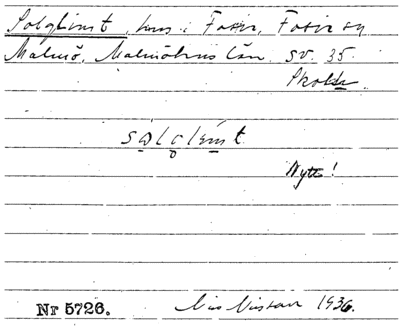 Solglimt, hus i Fosie, Fosie sn
Malmö, Malmöhus län. sv. 35.
Skolde
sωlglimt
Nytt!
Nr 5726. Nils Nilsson 1936.